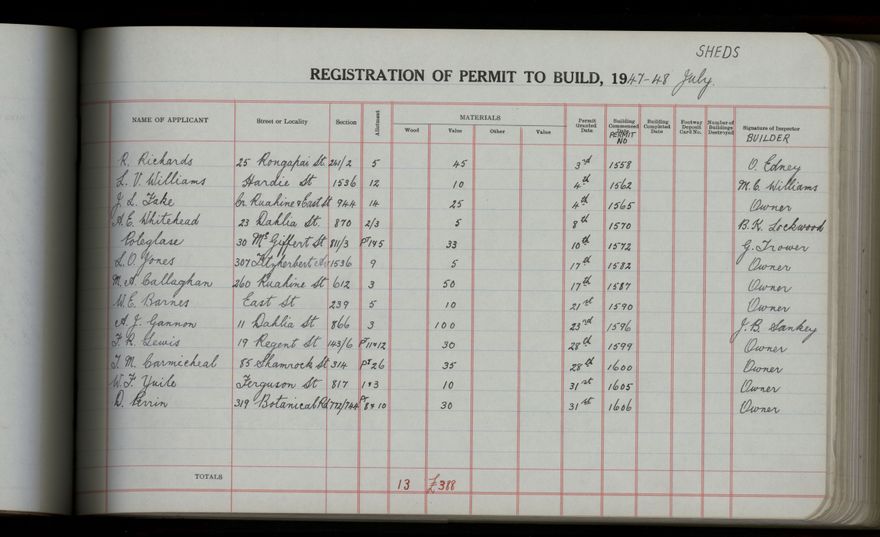 SHEDS
REGISTRATION OF PERMIT TO BUILD, 1947-48 July.
NAME OF APPLICANT Street or Locality Section Allotment MATERIALS Wood Value Other Value Permit Granted Date Building Commenced Date PERMIT NO Building Completed Date Footway Deposit Card No. Number of Buildings Destroyed Signature of Inspector BUILDER
R. Richards 25 Rongopai St. 241/2 5 45 3rd 1558 O. Edney
L. V. Williams Hardie St 1536 12 10 4th 1562 M. C. Williams
J. L. Fake Cr. Ruahine & East St 944 14 25 4th 1565 Owner
A. E. Whitehead 23 Dahlia St. 870 2/3 5 8th 1570 B. K. Lockwood
Coleglase 30 McGiffert St 811/3 Pt 1&5 33 10th 1572 G. Trower
L. O. Jones 307 Fitzherbert Av 1536 9 5 17th 1582 Owner
M. A. Callaghan 260 Ruahine St 612 3 50 17th 1587 Owner
W. E. Barnes East St 239 5 10 21st 1590 Owner
A. J. Gannon 11 Dahlia St 866 3 100 23rd 1596 J. B. Sankey
F. R. Lewis 19 Regent St 143/6 Pt 11&12 30 28th 1599 Owner
T. M. Carmicheal 85 Shamrock St 314 Pt 26 35 28th 1600 Owner
W. F. Yuile Ferguson St 817 1&3 10 31st 1605 Owner
D. Perrin 319 Botanical Rd 772/744 Pt 8&10 30 31st 1606 Owner
TOTALS 13 £388